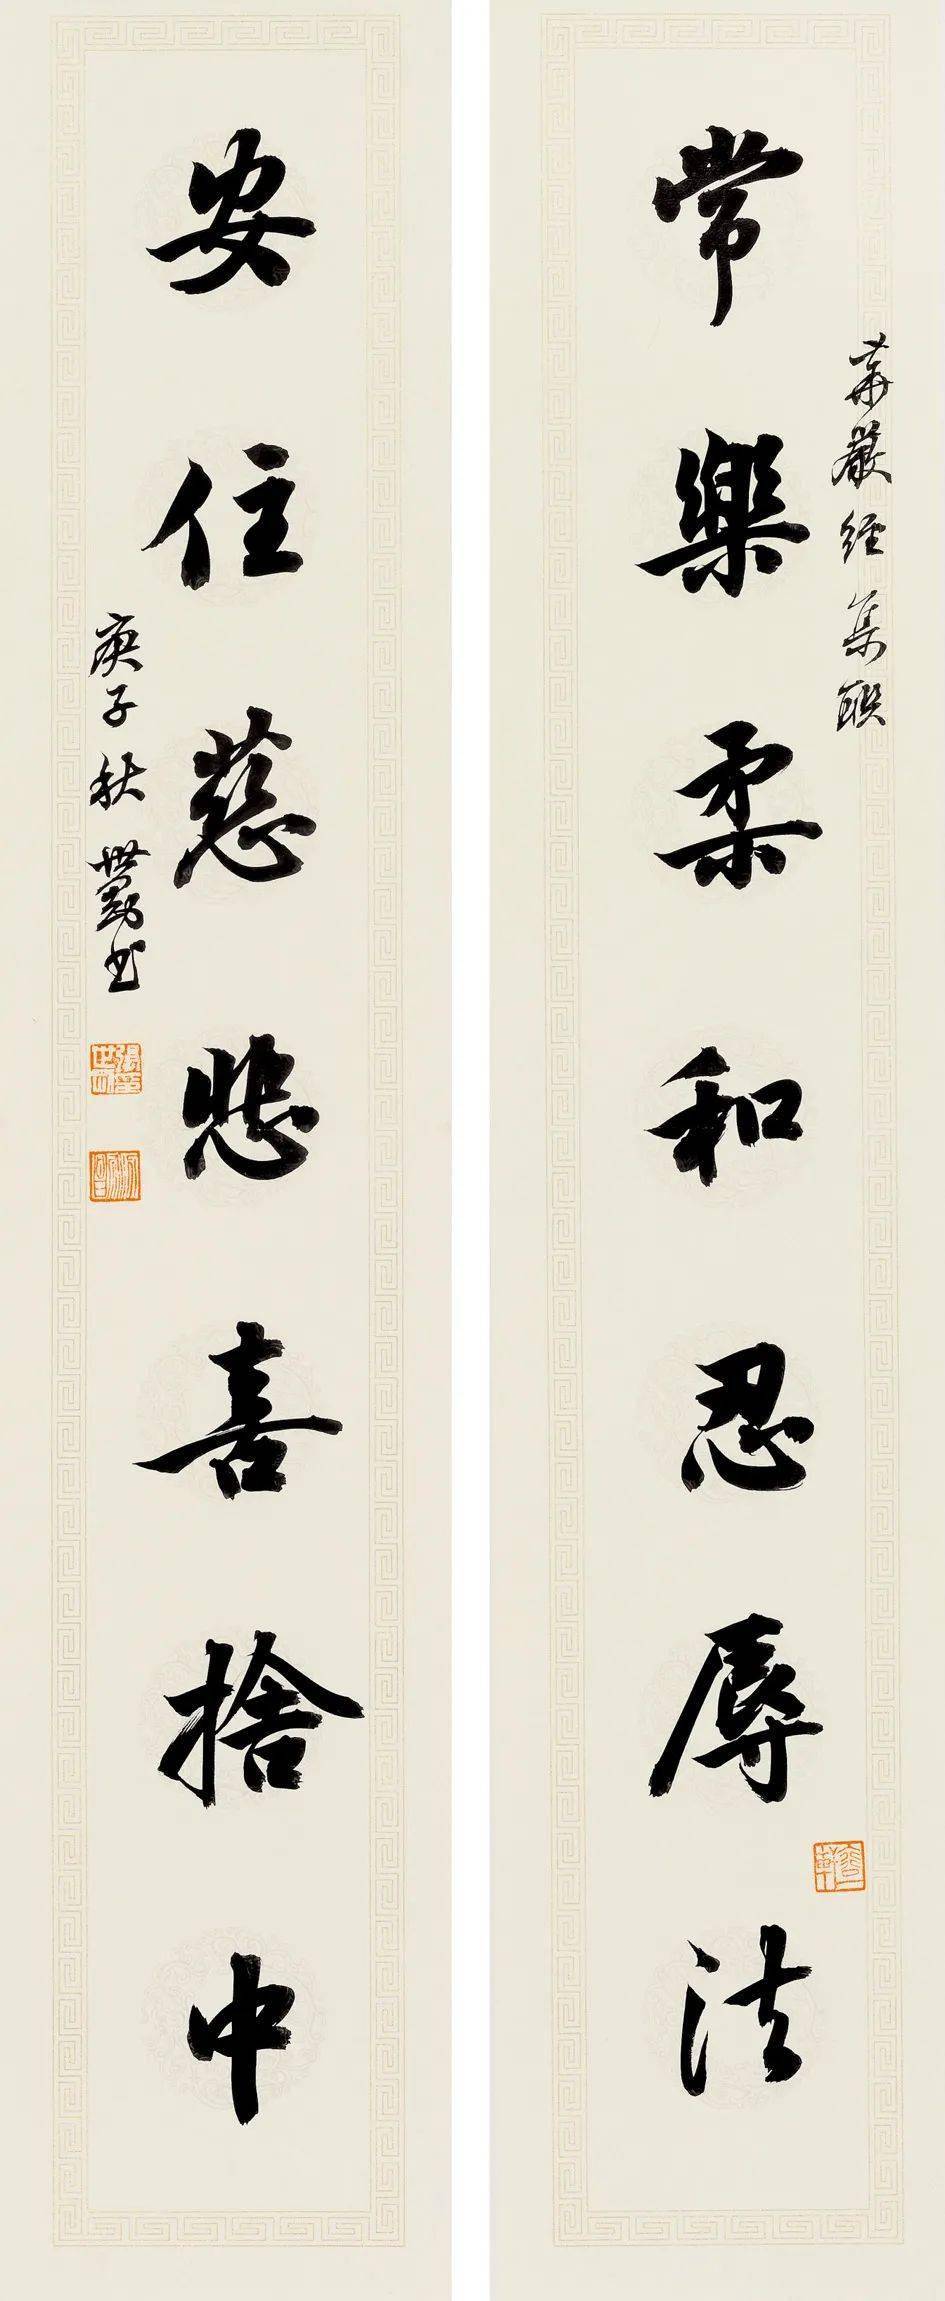 常樂柔和忍辱法
華嚴經集聯
安住慈悲喜捨中
庚子秋世勤書